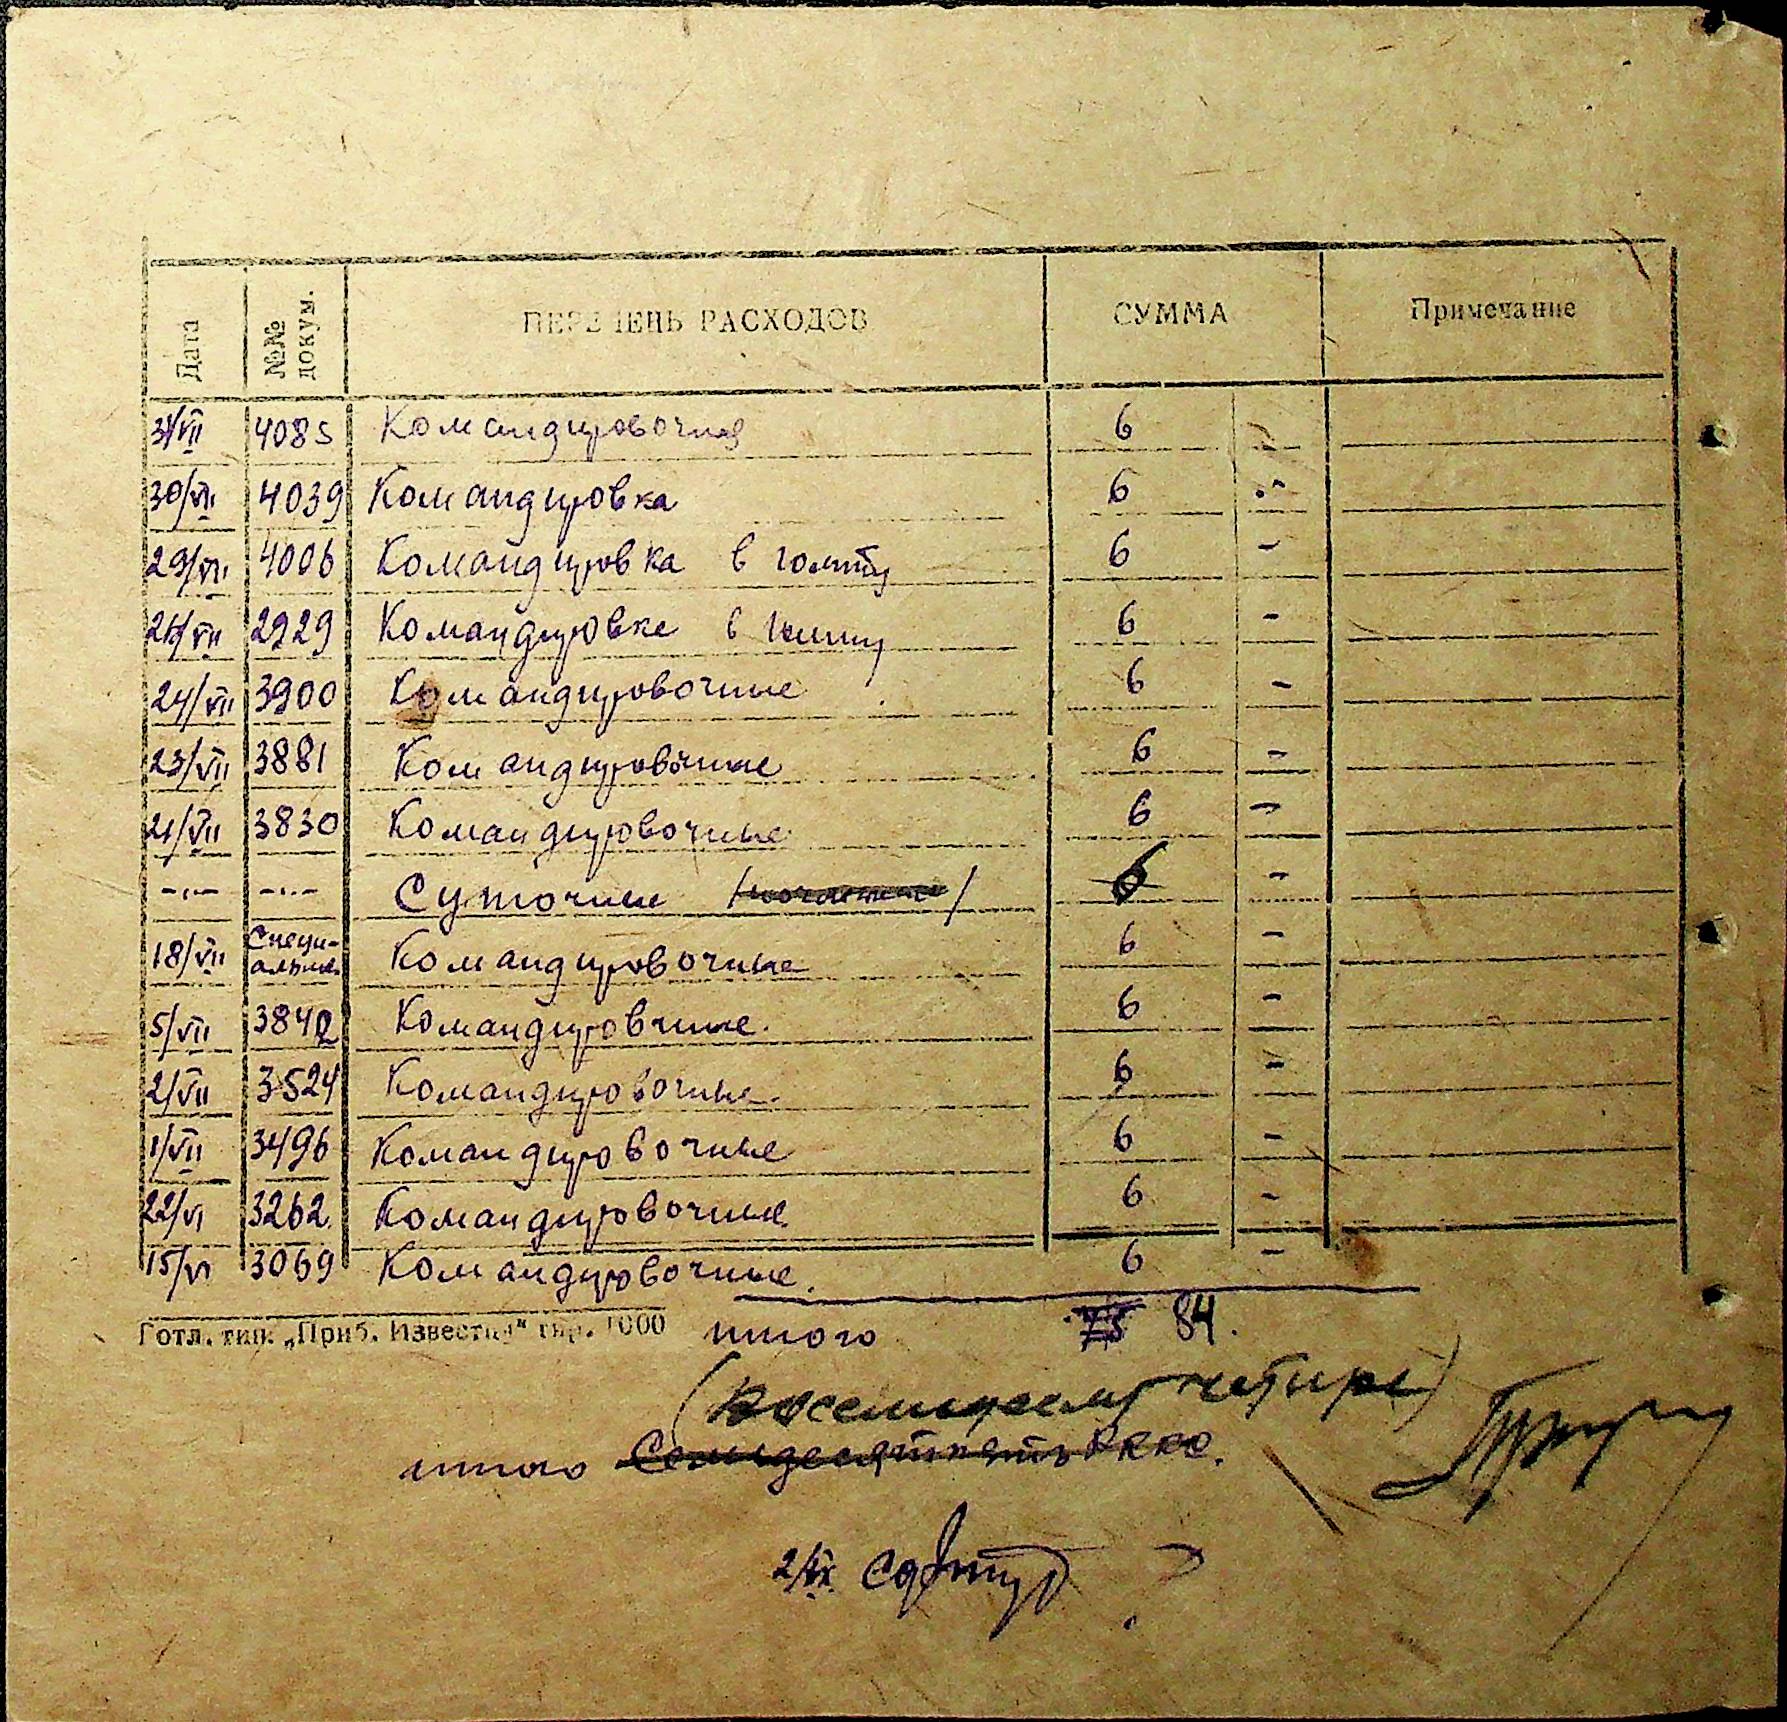 Дата №№ докум. ПЕРЕЧЕНЬ РАСХОДОВ СУММА Примечание
31/VII 4085 Командировочная 6 -
30/VII 4039 Командировка 6 -
29/VII 4006 Командировка в 6 -
24/VII 2929 Командировке в 6 -
24/VII 3900 Командировочные 6 -
23/VII 3881 Командировочные 6 -
21/VII 3830 Командировочные 6 -
-"- -"- Суточные 6 -
18/VII Специ-
альные Командировочные 6 -
5/VII 3842 Командировчные. 6 -
2/VII 3524 Командировочные. 6 -
1/VII 3496 Командировочные 6 -
22/VI 3262. Командировочные 6 -
15/VI 3069 Командировочные. 6 -
Готл. тип. „Приб. Известия" тир. 1000 итого 84.
(Восемьдесят четыре)
итого Семьдесят пять